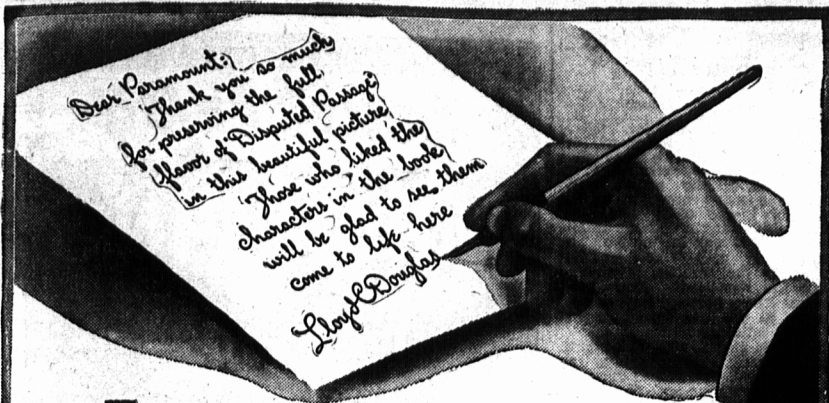 Dear Paramount:
"Thank you so much
for preserving the full
flavor of Disputed Passage
in this beautiful picture.
Those who liked the
characters in the book
will be glad to see them
come to life here
Lloyd C Douglas